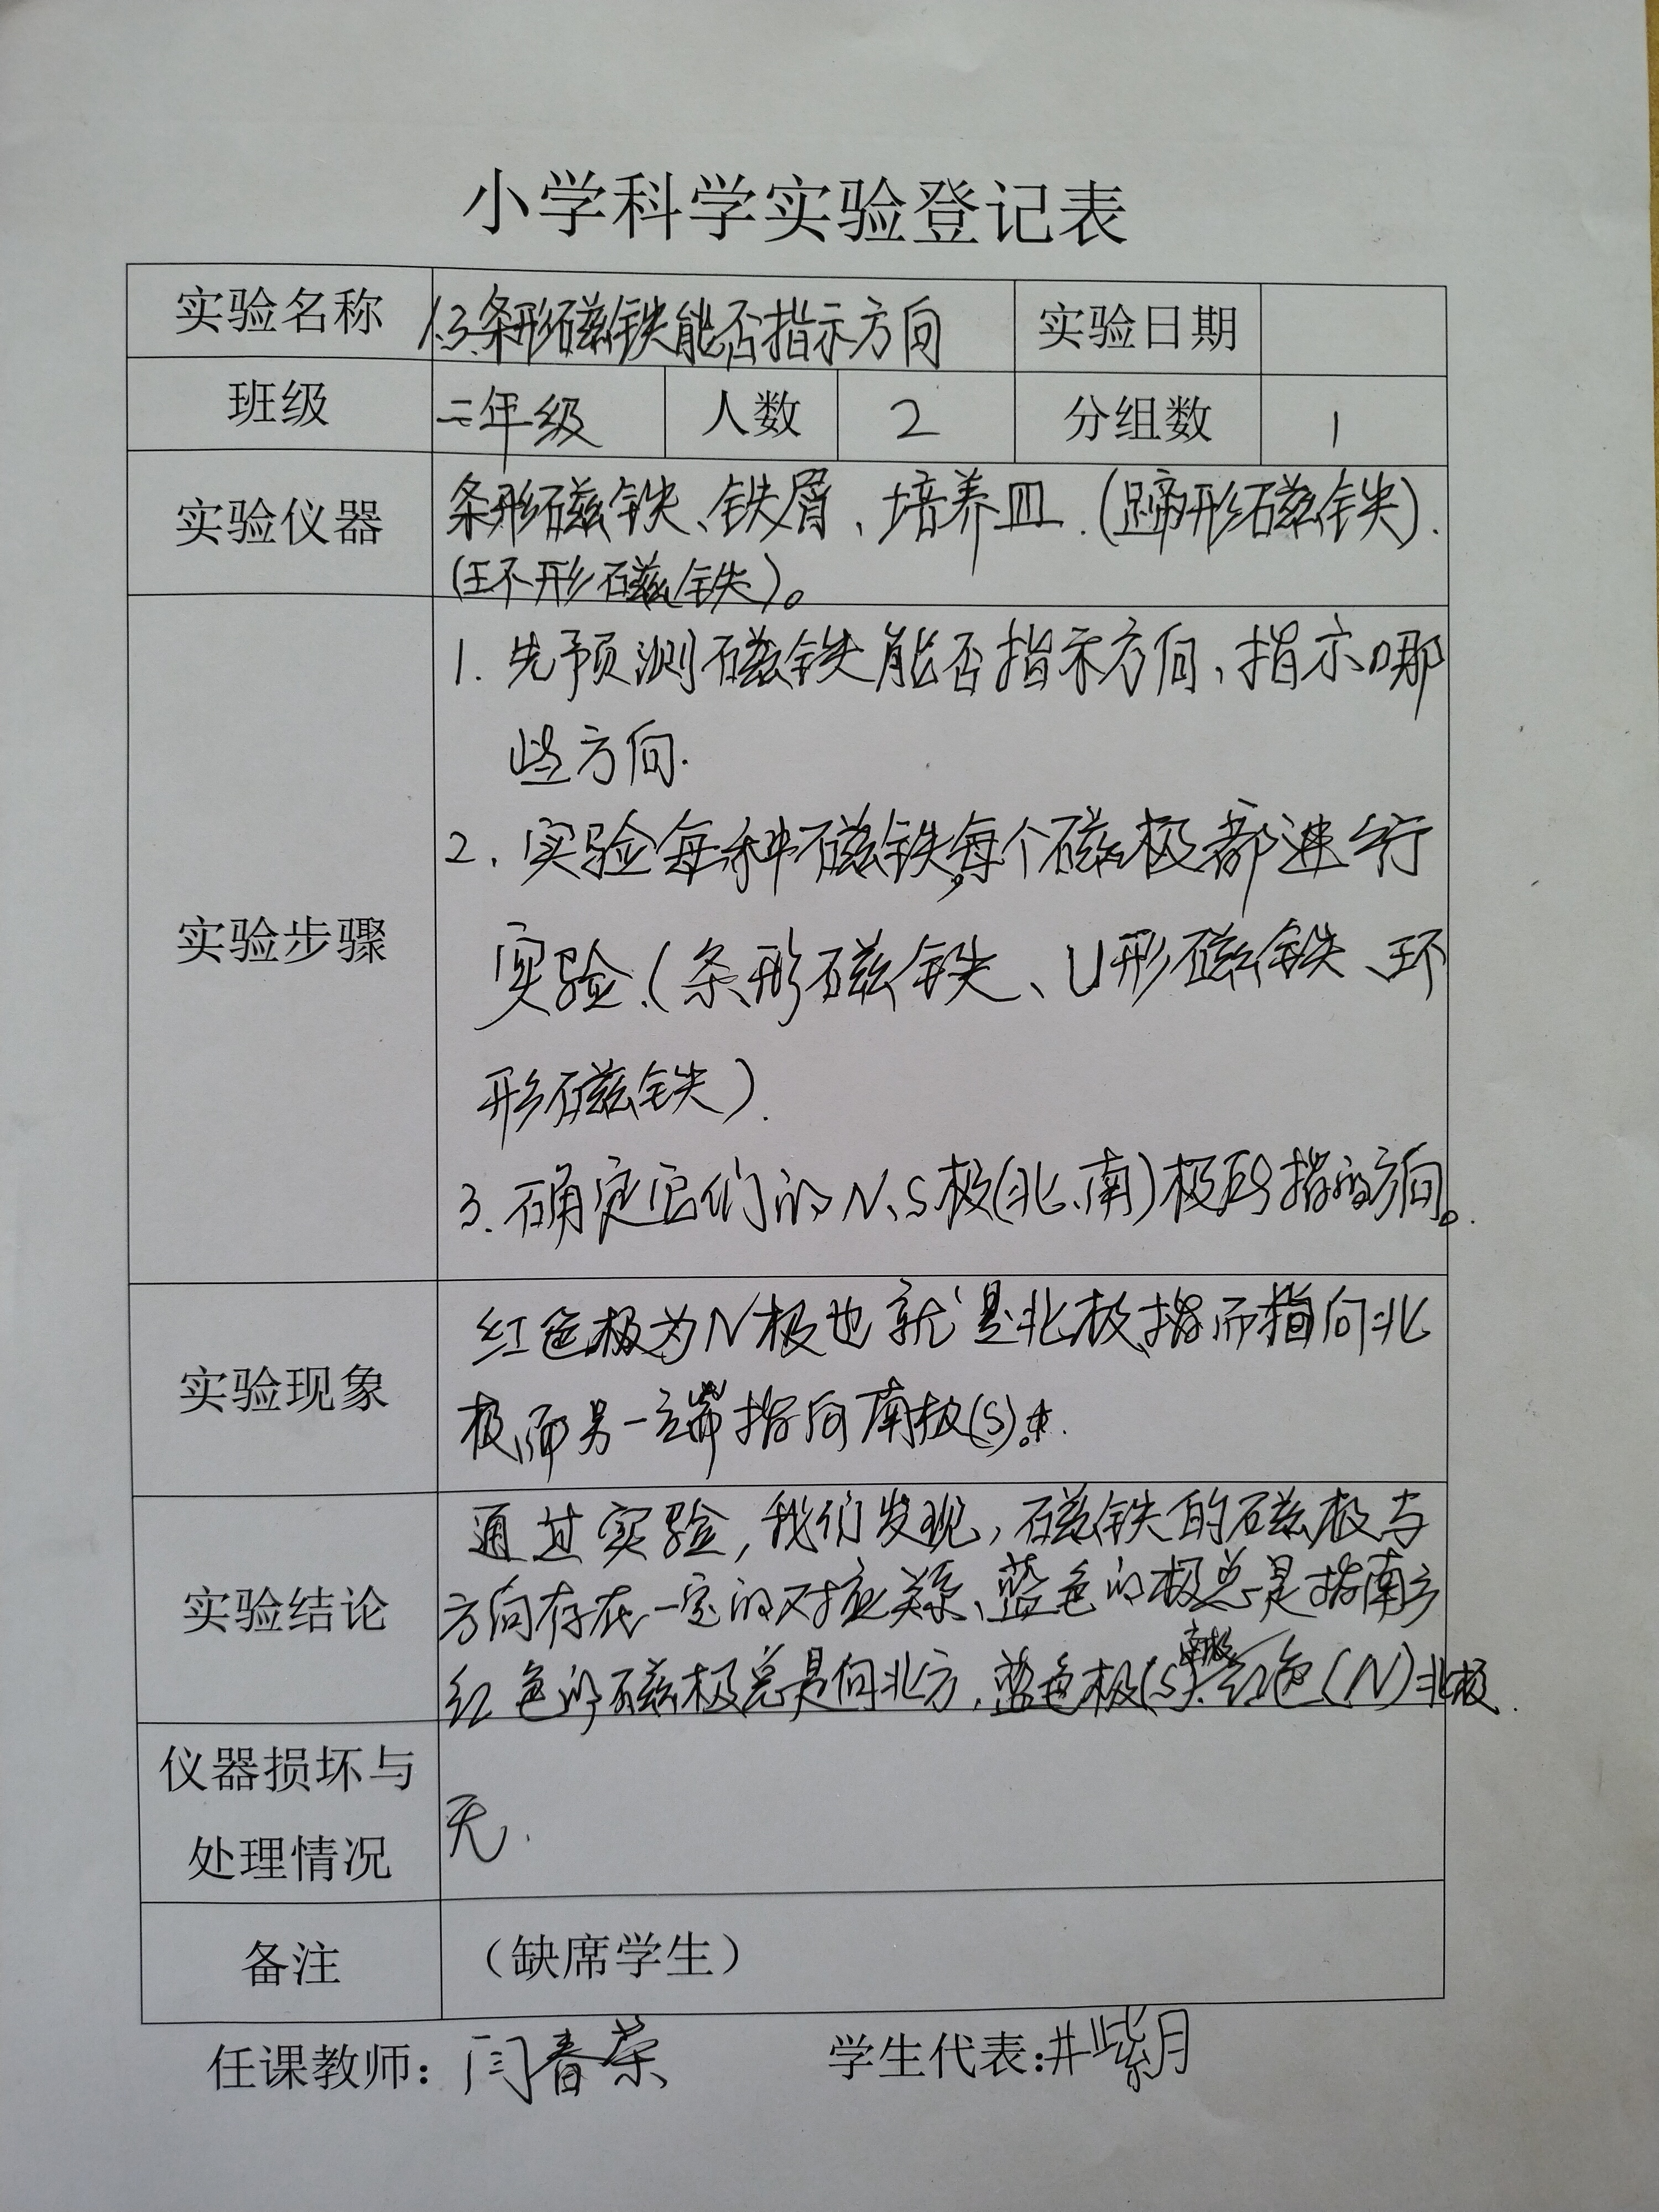 小学科学实验登记表
实验名称 1.3.条形磁铁能否指示方向 实验日期
班级 二年级 人数 2 分组数 1
实验仪器 条形磁铁、铁屑、培养皿.(蹄形磁铁).
(环形磁铁)。
实验步骤
1. 先预测磁铁能否指示方向,指示哪
些方向.
2. 实验每种磁铁,每个磁极都进行
实验.(条形磁铁、U形磁铁、环
形磁铁).
3. 确定它们的N、S极(北、南)极所指的方向。
实验现象
红色极为N极也就是北极,指而指向北
极,而另一端指向南极(S)。
实验结论
通过实验,我们发现,磁铁的磁极与
方向存在一定的对应关系、蓝色的极总是指南方
红色的磁极总是向北方,蓝色极(S)南极.红色(N)北极.
仪器损坏与
处理情况
无.
备注 (缺席学生)
任课教师:闫春荣 学生代表:井紫月